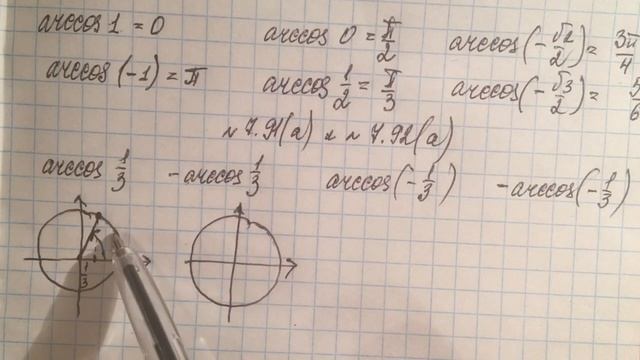 arccos 1 = 0 arccos 0 = π/2 arccos(-√2/2) = 3π/4
arccos (-1) = π arccos 1/2 = π/3 arccos(-√3/2) = 5/6
~ 7.91(a) и ~ 7.92(a)
arccos 1/3 -arccos 1/3 arccos(-1/3) -arccos(-1/3)
1/3